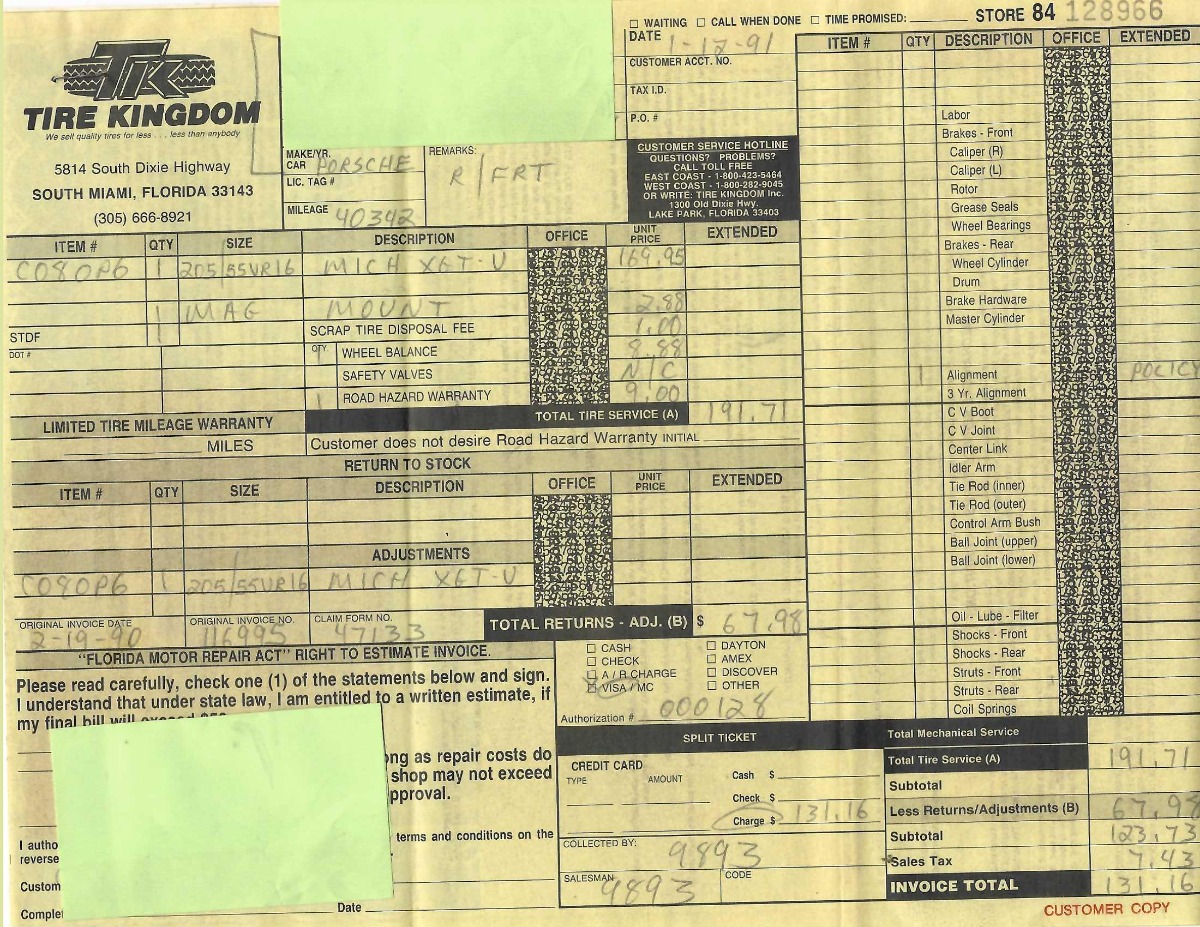 ☐ WAITING ☐ CALL WHEN DONE ☐ TIME PROMISED: STORE 84 128966
TIRE KINGDOM
We sell quality tires for less . . . less than anybody
5814 South Dixie Highway
SOUTH MIAMI, FLORIDA 33143
(305) 666-8921
MAKE/YR. CAR PORSCHE
LIC. TAG #
MILEAGE 40342
REMARKS:
R/FRT
DATE 1-12-91
CUSTOMER ACCT. NO.
TAX I.D.
P.O. #
CUSTOMER SERVICE HOTLINE
QUESTIONS? PROBLEMS?
CALL TOLL FREE
EAST COAST - 1-800-423-5464
WEST COAST - 1-800-282-9045
OR WRITE: TIRE KINGDOM Inc.
1300 Old Dixie Hwy.
LAKE PARK, FLORIDA 33403
ITEM # QTY SIZE DESCRIPTION OFFICE UNIT PRICE EXTENDED
C080P6 1 205/55VR16 MICH XGT-V 169.95
1 MAG MOUNT 2.88
STDF 1 SCRAP TIRE DISPOSAL FEE 1.00
DOT # QTY 1 WHEEL BALANCE 8.88
SAFETY VALVES N/C
1 ROAD HAZARD WARRANTY 9.00
TOTAL TIRE SERVICE (A) 191.71
LIMITED TIRE MILEAGE WARRANTY
MILES
Customer does not desire Road Hazard Warranty INITIAL
RETURN TO STOCK
ITEM # QTY SIZE DESCRIPTION OFFICE UNIT PRICE EXTENDED
ADJUSTMENTS
C080P6 1 205/55VR16 MICH XGT-V
ORIGINAL INVOICE DATE 2-19-90
ORIGINAL INVOICE NO. 116995
CLAIM FORM NO. 47133
TOTAL RETURNS - ADJ. (B) $ 67.98
"FLORIDA MOTOR REPAIR ACT" RIGHT TO ESTIMATE INVOICE.
Please read carefully, check one (1) of the statements below and sign.
I understand that under state law, I am entitled to a written estimate, if
my final bill will exceed $50
ong as repair costs do
shop may not exceed
pproval.
I autho terms and conditions on the
reverse
Custom
Complet Date
☐ CASH ☐ DAYTON
☐ CHECK ☐ AMEX
☐ A / R CHARGE ☐ DISCOVER
☒ VISA / MC ☐ OTHER
Authorization # 000128
SPLIT TICKET
CREDIT CARD
TYPE AMOUNT
Cash $
Check $
Charge $ 131.16
COLLECTED BY: 9893
SALESMAN 9893 CODE
ITEM # QTY DESCRIPTION OFFICE EXTENDED
Labor
Brakes - Front
Caliper (R)
Caliper (L)
Rotor
Grease Seals
Wheel Bearings
Brakes - Rear
Wheel Cylinder
Drum
Brake Hardware
Master Cylinder
1 Alignment POLICY
3 Yr. Alignment
C V Boot
C V Joint
Center Link
Idler Arm
Tie Rod (inner)
Tie Rod (outer)
Control Arm Bush
Ball Joint (upper)
Ball Joint (lower)
Oil - Lube - Filter
Shocks - Front
Shocks - Rear
Struts - Front
Struts - Rear
Coil Springs
Total Mechanical Service
Total Tire Service (A) 191.71
Subtotal
Less Returns/Adjustments (B) 67.98
Subtotal 123.73
Sales Tax 7.43
INVOICE TOTAL 131.16
CUSTOMER COPY